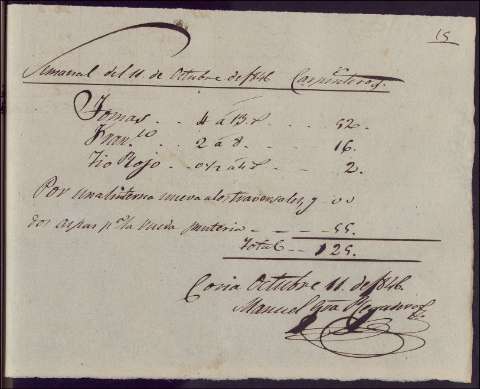 15
Semanal del 11 de Octubre de 1846 Carpinteros.
Tomas . . 4 á 13 . . . 52.
Fran.co . . 2 á 8 . . . 16.
Tio Rojo . . 0 1/2 á 4 . . 2.
Por una linterna nueva alos trabesales, y 00
dos aspas p.a la nueva . . . 55.
Total . . 125.
Coria Octubre 11. de 1846.
Manuel